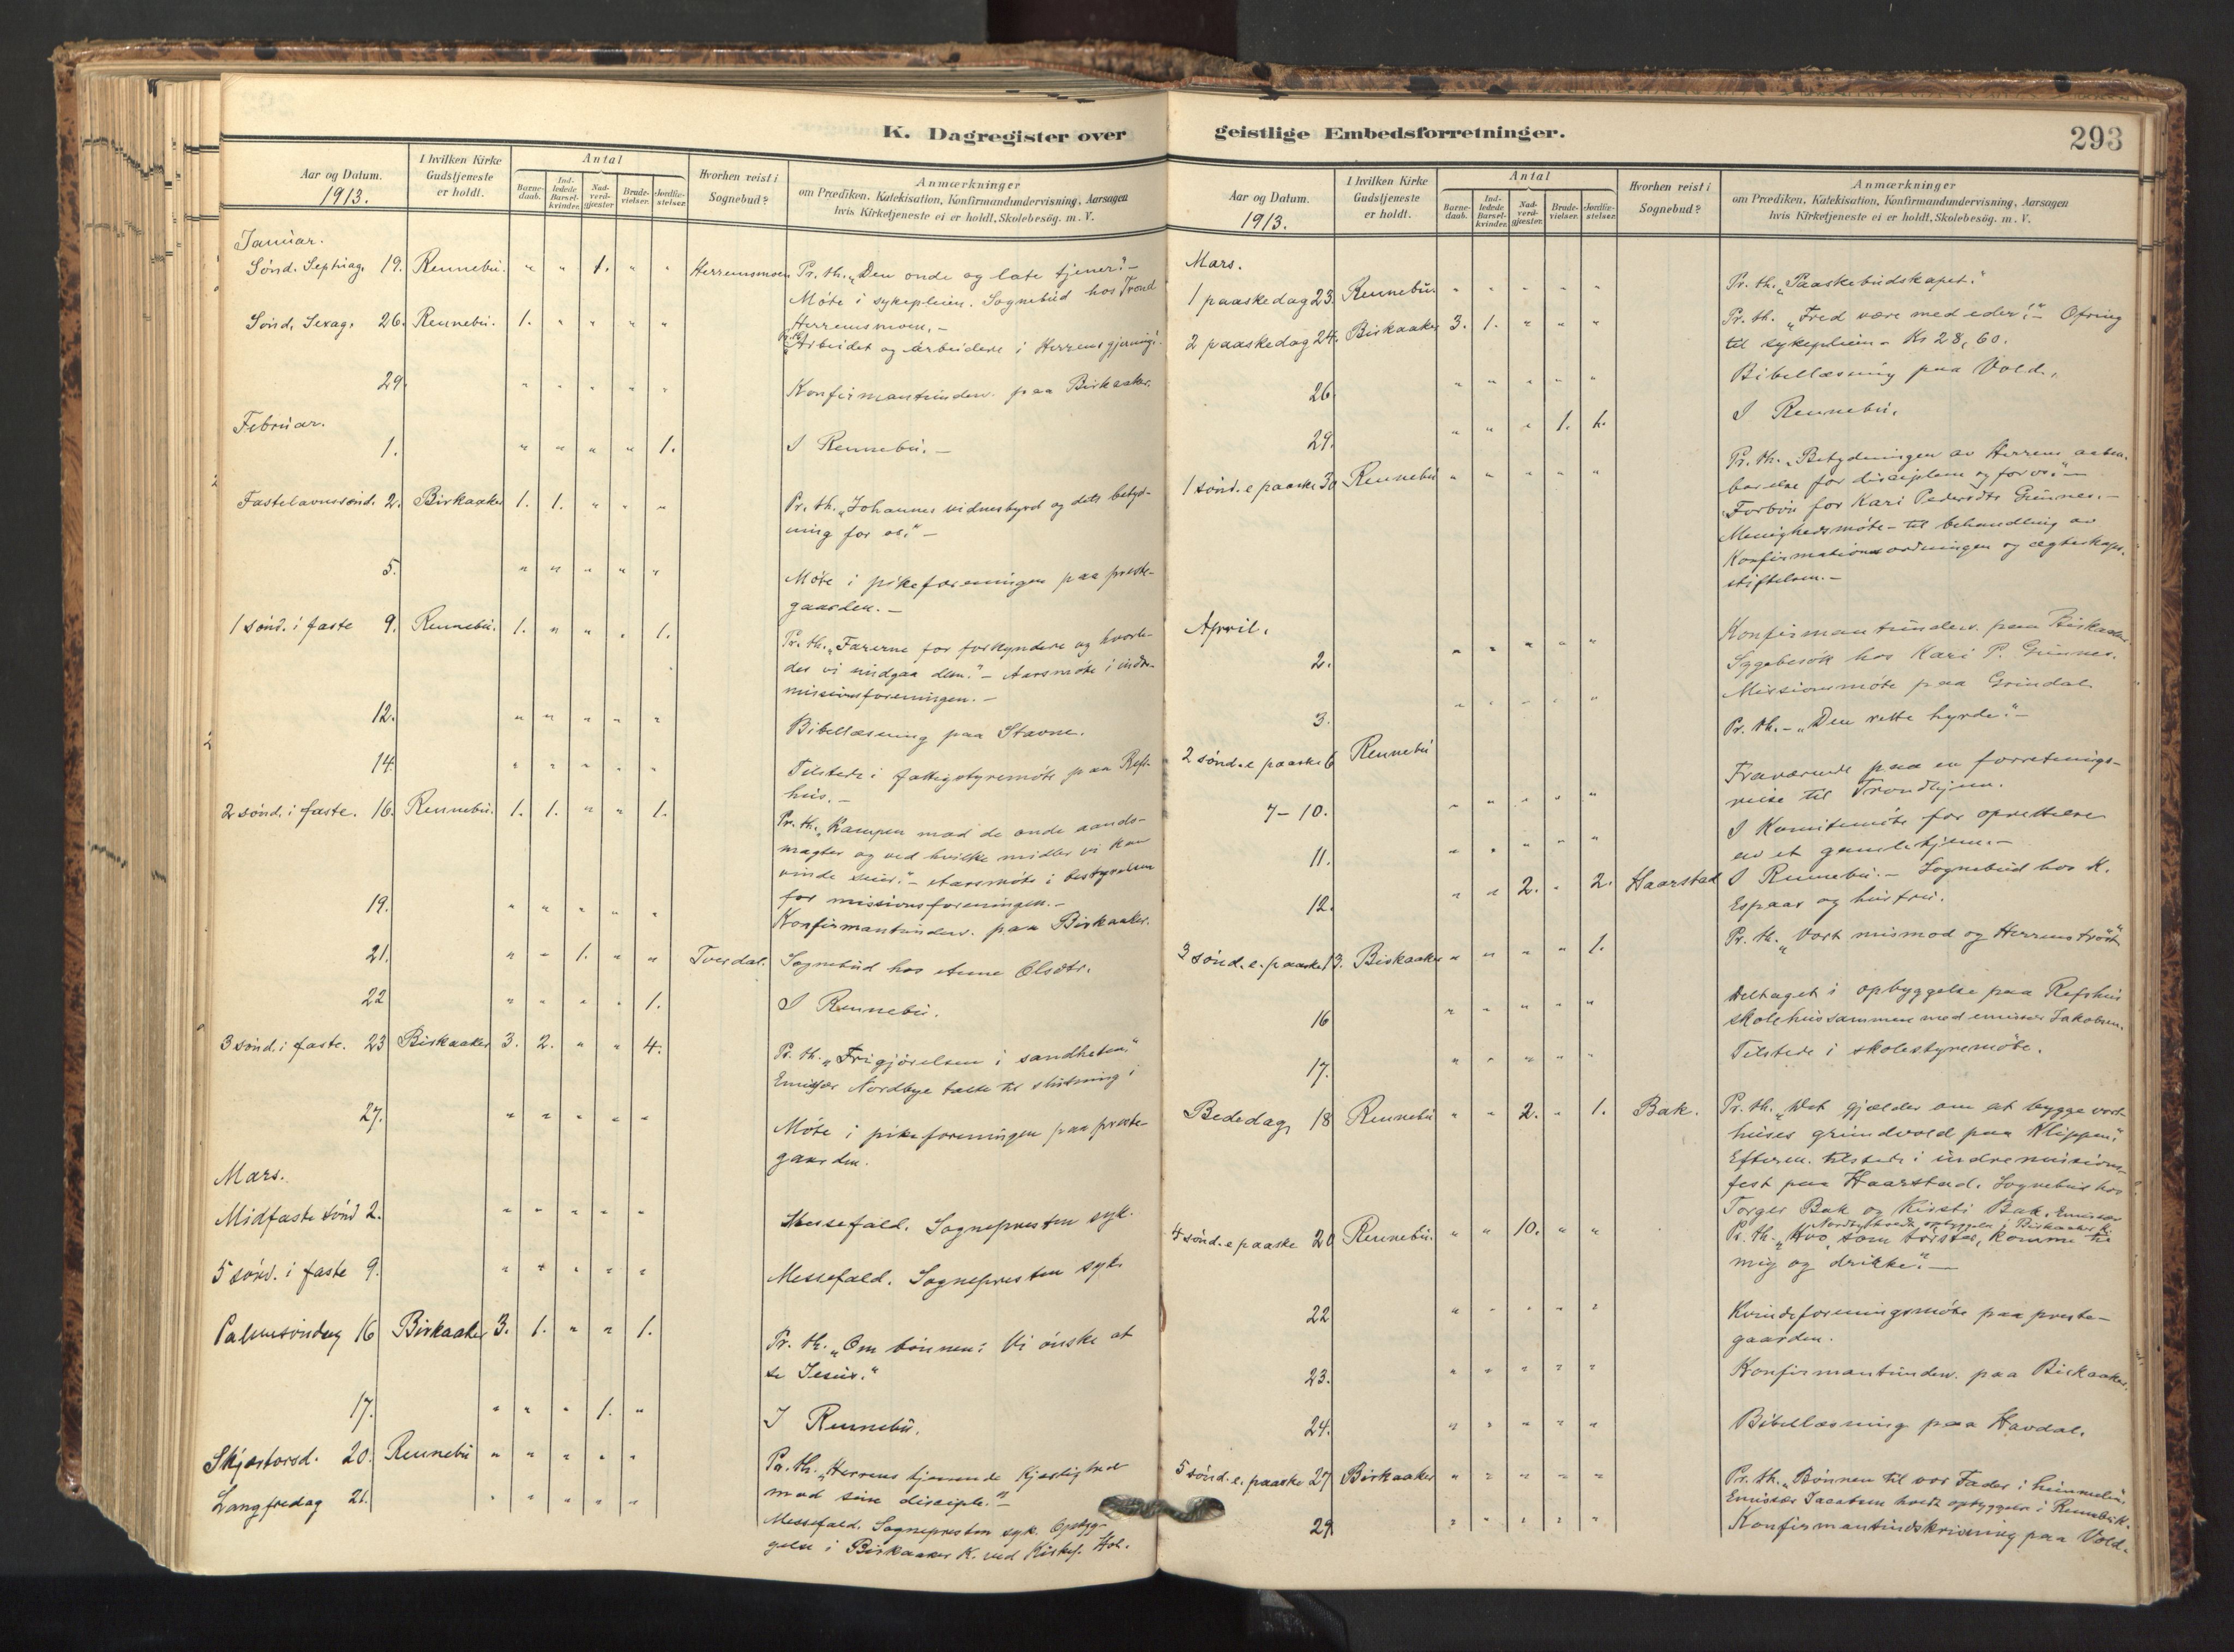 K. Dagregister over geistlige Embedsforretninger.
293
Aar og Datum.
1913.
I hvilken Kirke
Gudstjeneste
er holdt.
Antal
Barne-
daab.
Ind-
ledede
Barsel-
kvinder.
Nad-
verd-
gjæster.
Brude-
vielser.
Jordfæ-
stelser.
Hvorhen reist i
Sognebud?
Anmærkninger
om Prædiken, Katekisation, Konfirmandundervisning, Aarsagen
hvis Kirketjeneste ei er holdt, Skolebesög. m. V.
Januar.
Sønd. Septuag. 19. Rennebu. " " 1. " " Herremsmoen Pr. th. „Den onde og late tjener." –
Møte i sykepleien. Sognebud hos Trond
Herremsmoen. –
Sønd. Sexag. 26. Rennebu. 1. " " " " Pr. th. „Arbeidet og arbeidere i Herrens gjerning."
29. " " " " " Konfirmantunderv. paa Birkaaker.
Februar.
1. " " " " 1. I Rennebu. –
Fastelavnssønd. 2. Birkaaker 1. 1. " " " Pr. th. „Johannes vidnesbyrd og dets betyd-
ning for os." –
5. " " " " " Møte i pikeforeningen paa preste-
gaarden. –
1 sønd. i faste 9. Rennebu. 1. " " " 1. Pr. th. „Farerne for forkyndere og hvorle-
des vi undgaa dem." – Aarsmøte i indre-
missionsforeningen. –
12. " " " " " Bibellæsning paa Stavne.
14. " " " " " Tilstede i fattigstyremøte paa Refs-
hus. –
2 sønd. i faste. 16. Rennebu. 1. 1. " " 1. Pr. th. „Kampen mod de onde aands-
magter og ved hvilke midler vi kan
vinde seier." – Aarsmøte i bestyrelsen
for missionsforeningen. –
19. " " " " " Konfirmantunderv. paa Birkaaker.
21. " " 1. " " Tverdal. Sognebud hos Anne Olsdtr.
22 " " " " 1. I Rennebu.
3 sønd. i faste. 23 Birkaaker 3. 2. " " 4. Pr. th. „Frigjørelsen i sandheten."
Emissær Nordbye talte til slutning i
27. " " " " " Møte i pikeforeningen paa preste-
gaarden.
Mars.
Midfaste sønd 2. " " " " " Messefald. Sognepresten syk.
5 sønd. i faste 9. " " " " " Messefald. Sognepresten syk.
Palmesøndag 16 Birkaaker 3. 1. " " 1. Pr. th. „Om bønnen: Vi ønske at
se Jesus."
17. " " " 1. " I Rennebu.
Skjærtorsd. 20. Rennebu " " " " " Pr. th. „Herrens tjenende kjærlighed
mod sine disciple." –
Langfredag 21. " " " " " Messefald. Sognepresten syk. Opbyg-
gelse i Birkaaker K. ved Kirkes. Hol.
Aar og Datum.
1913.
I hvilken Kirke
Gudstjeneste
er holdt.
Antal
Barne-
daab.
Ind-
ledede
Barsel-
kvinder.
Nad-
verd-
gjæster.
Brude-
vielser.
Jordfæ-
stelser.
Hvorhen reist i
Sognebud?
Anmærkninger
om Prædiken, Katekisation, Konfirmandundervisning, Aarsagen
hvis Kirketjeneste ei er holdt, Skolebesög. m. V.
Mars.
1 paaskedag 23. Rennebu. " " " " " Pr. th. „Paaskebudskapet."
2 paaskedag 24. Birkaaker 3. 1. " " " Pr. th. „Fred være med eder!" – Ofring
til sykepleien – Kr 28,60.
26. " " " " " Bibellæsning paa Vold.
29. " " " 1. 1. I Rennebu.
1 sønd. e paaske 30 Rennebu " " " " " Pr. th. „Betydningen av Herrens aaben-
barelse for disciplene og for os." –
Forbøn for Kari Pedersdtr Gunnes. –
Menighedsmøte – til behandling av
Konfirmationsordningen og ægteskaps-
stiftelsen. –
April.
2. " " " " " Konfirmantunderv. paa Birkaaker
Sygebesøk hos Kari P. Gunnes.
3. " " " " " Missionsmøte paa Grindal
2 sønd. e paaske 6 Rennebu Pr. th. – „Den rette hyrde." –
7 – 10. " " " " " Fraværende paa en forretnings-
reise til Trondhjem.
11. " " " " " I Komitemøte for oprettelse
av et gamlehjem. –
12. " " 2. " 2. Haarstad I Rennebu. – Sognebud hos K.
Espaas og hustru.
3 sønd. e. paaske 13. Birkaaker " " " " 1. Pr. th. „Vort mismod og Herrens trøst"
16 " " " " " Deltaget i opbyggelse paa Refshus
skolehus sammen med emissær Jakobsen.
17. " " " " " Tilstede i skolestyremøte.
Bededag 18 Rennebu " " 2. " 1. Bak. Pr. th. „Det gjælder om at bygge vort
huses grundvold paa Klippen."
Efterm. tilstede i indremissions-
fest paa Haarstad. Sognebud hos
Torger Bak og Kirsti Bak. Emissær
Nordbye holdt opbyggelse i Birkaaker K.
4 sønd. e paaske 20 Rennebu. " " 10. " " Pr. th. „Hvo, som tørster, komme til
mig og drikke." –
22 " " " " " Kvindeforeningsmøte paa preste-
gaarden.
23. " " " " " Konfirmantunderv. paa Birkaaker.
24. " " " " " Bibellæsning paa Havdal.
5 sønd. e. paaske 27 Birkaaker " " " " " Pr. th. „Bønnen til vor Fader i himmelen."
Emissær Jacobsen holdt opbyggelse i Rennebu K.
29. " " " " " Konfirmantindskrivning paa Vold.